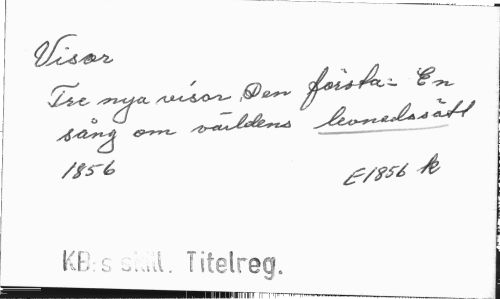 Visor
Tre nya visor. Den första: En
sång om världens levnedssätt
1856
E1856 k
KB:s skill. Titelreg.